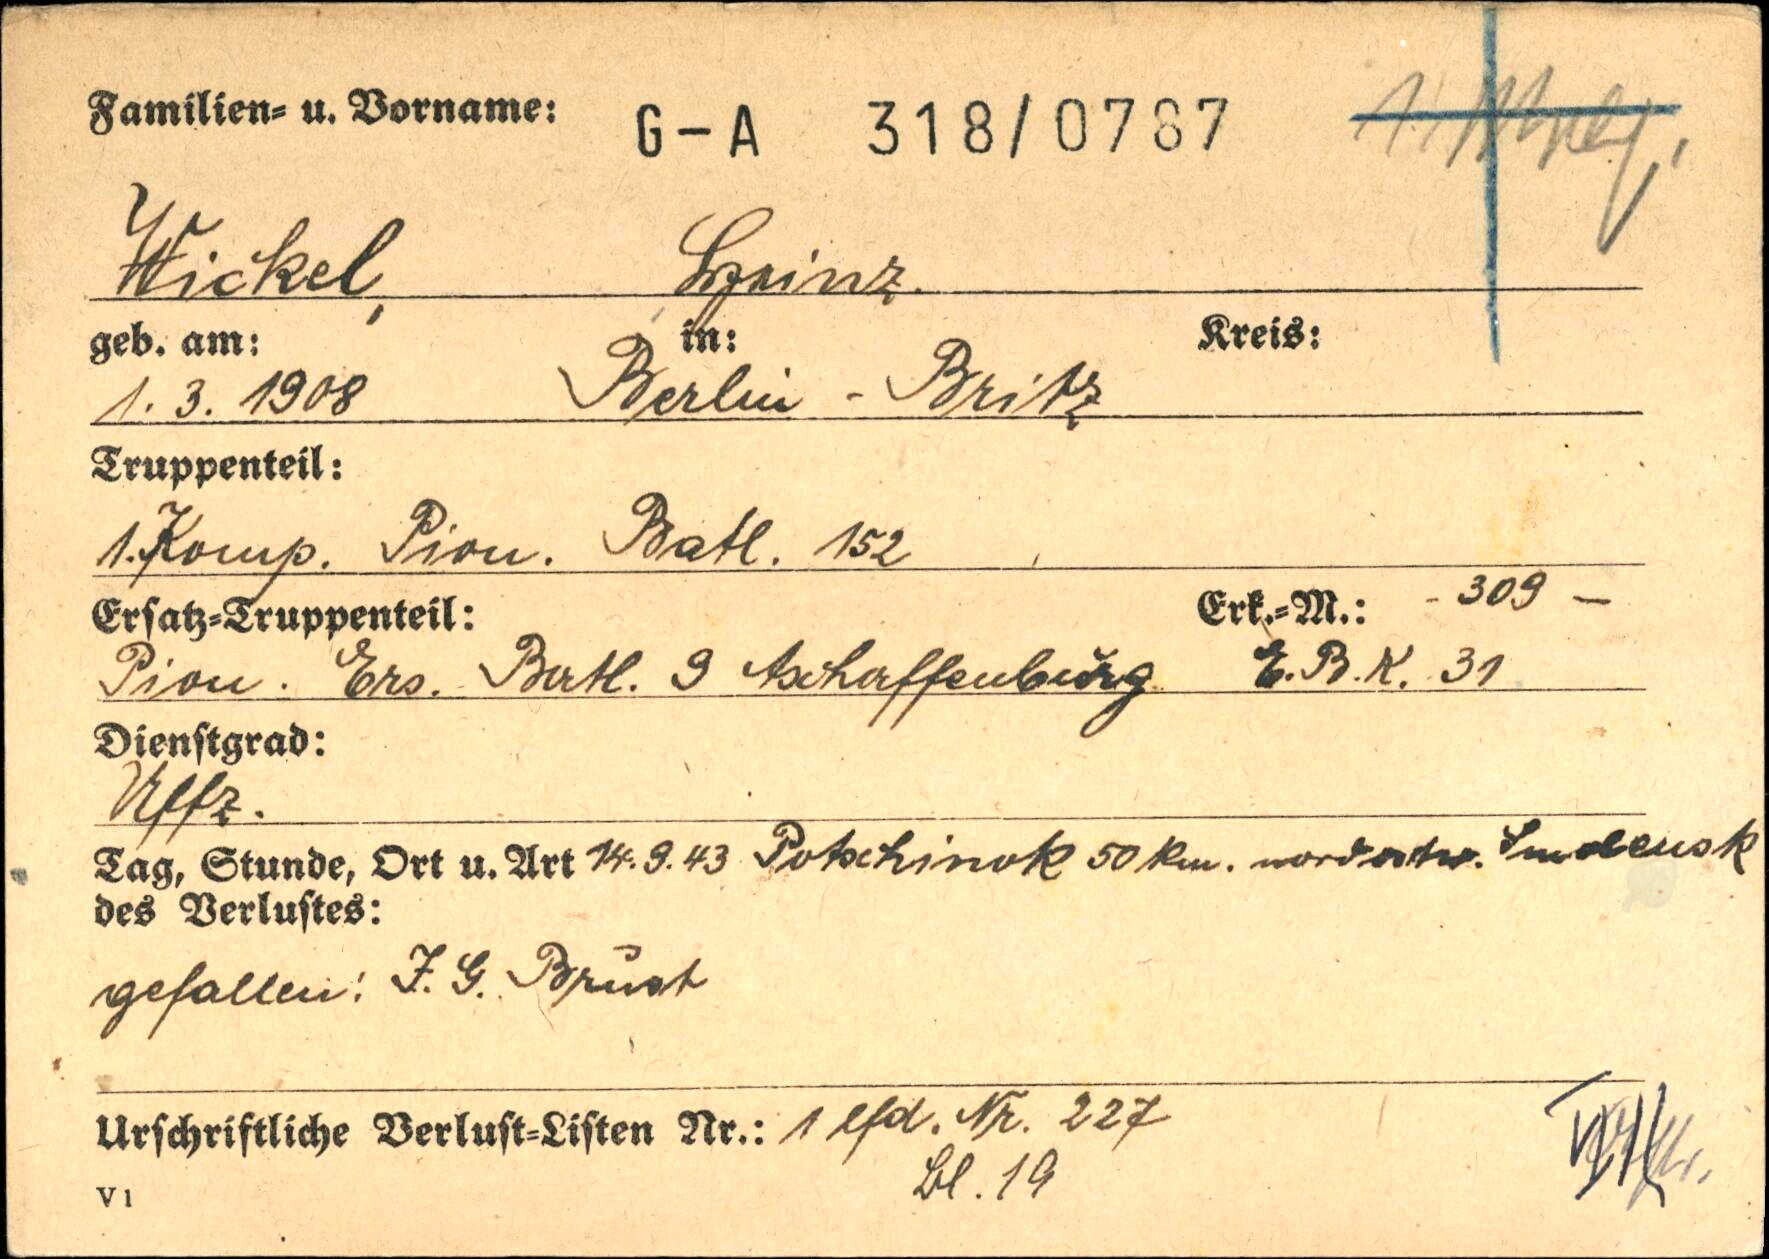 Familien- u. Vorname: G-A 318/0787
Wickel, Heinz.
geb. am: in: Kreis:
1. 3. 1908 Berlin - Britz
Truppenteil:
1. Komp. Pion. Batl. 152
Ersatz-Truppenteil: Erk.-M.: - 309 -
Pion. Ers. Batl. 9 Aschaffenburg E.B.K. 31
Dienstgrad:
Uffz.
Tag, Stunde, Ort u. Art 14.9.43 Potschinok 50 km. nordostw. Smolensk
des Verlustes:
gefallen: I. G. Brust
Urschriftliche Verlust-Listen Nr.: 1 lfd. Nr. 227
Bl. 19
V 1